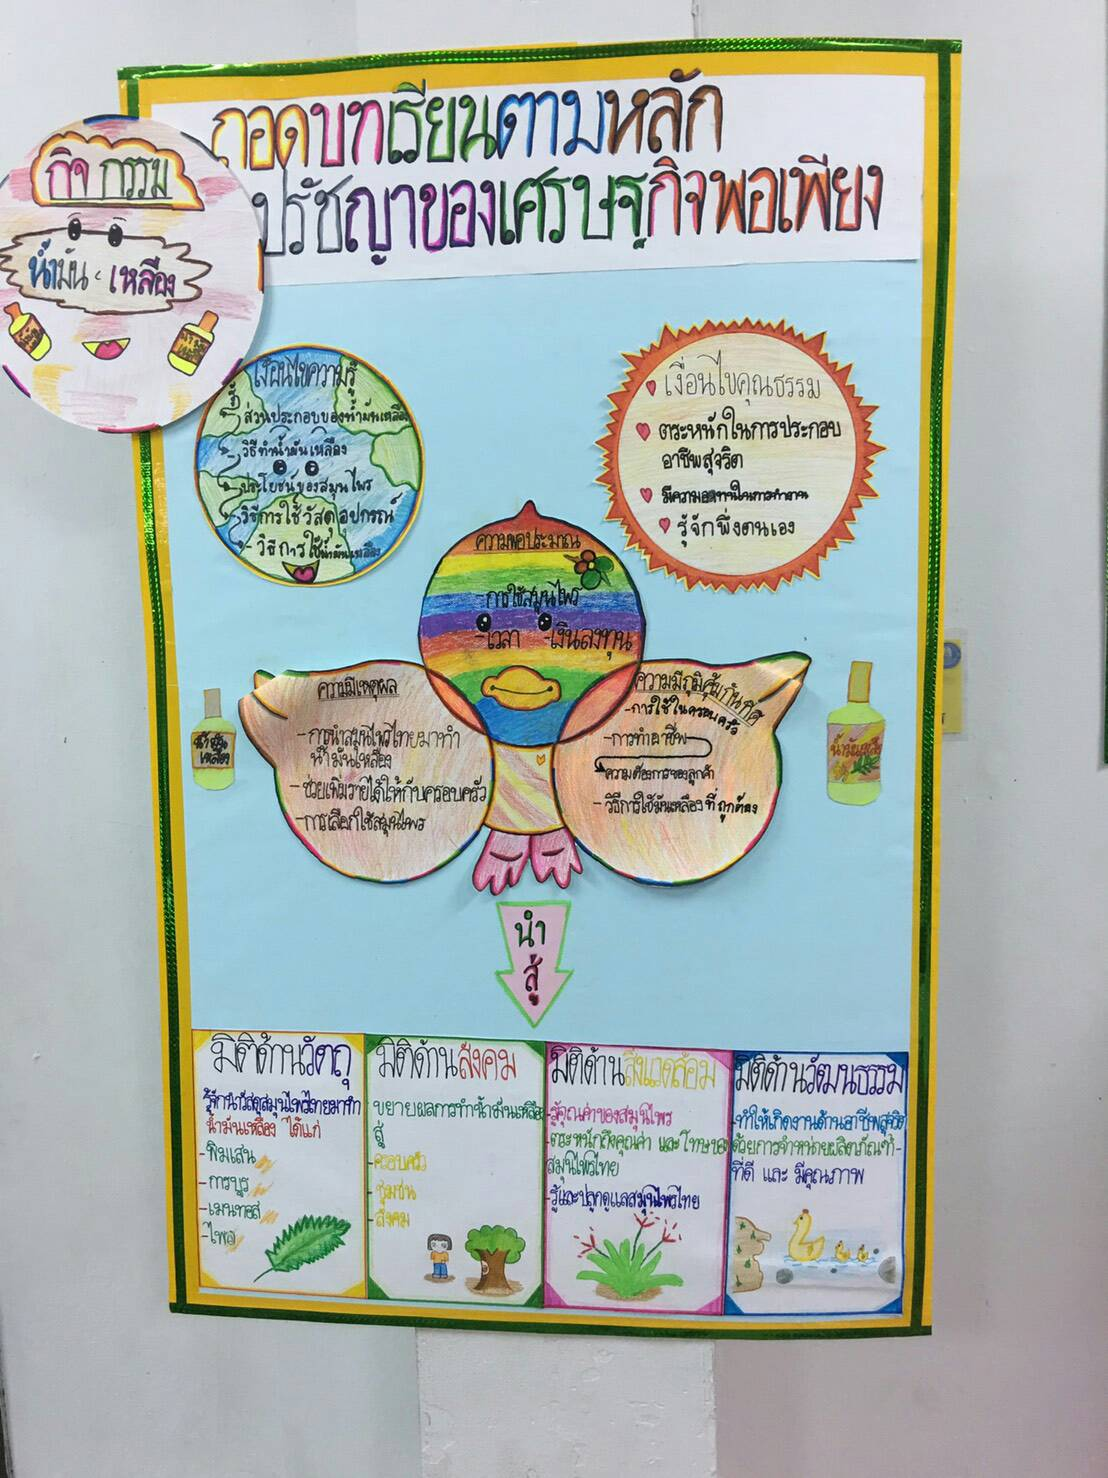 ถอดบทเรียนตามหลัก
ปรัชญาของเศรษฐกิจพอเพียง
กิจกรรม
น้ำมันเหลือง
เงื่อนไขความรู้
ส่วนประกอบของน้ำมันเหลือง
- วิธีทำน้ำมันเหลือง
- ประโยชน์ของสมุนไพร
- วิธีการใช้วัสดุอุปกรณ์
- วิธีการใช้น้ำมันเหลือง
เงื่อนไขคุณธรรม
ตระหนักในการประกอบ
อาชีพสุจริต
มีความอดทนในการทำงาน
รู้จักพึ่งตนเอง
ความพอประมาณ
- การใช้สมุนไพร
- เวลา - เงินลงทุน
ความมีเหตุผล
- การนำสมุนไพรไทยมาทำ
น้ำมันเหลือง
- ช่วยเพิ่มรายได้ให้กับครอบครัว
- การเลือกใช้สมุนไพร
ความมีภูมิคุ้มกันที่ดี
- การใช้ในครอบครัว
- การทำอาชีพ
ความต้องการของลูกค้า
- วิธีการใช้มันเหลืองที่ถูกต้อง
น้ำมัน
เหลือง
น้ำมันเหลือง
นำ
สู่
มิติด้านวัตถุ
รู้จักนำวัสดุสมุนไพรไทยมาทำ
น้ำมันเหลือง ได้แก่
- พิมเสน
- การบูร
- เมนทอล
- ไพล
มิติด้านสังคม
ขยายผลการทำน้ำมันเหลือง
สู่
- ครอบครัว
- ชุมชน
- สังคม
มิติด้านสิ่งแวดล้อม
- รู้คุณค่าของสมุนไพร
- ตระหนักถึงคุณค่า และโทษของ
สมุนไพรไทย
- รู้และปลูกดูแลสมุนไพรไทย
มิติด้านวัฒนธรรม
- ทำให้เกิดงานด้านอาชีพสุจริต
ด้วยการจำหน่ายผลิตภัณฑ์
ที่ดี และ มีคุณภาพ